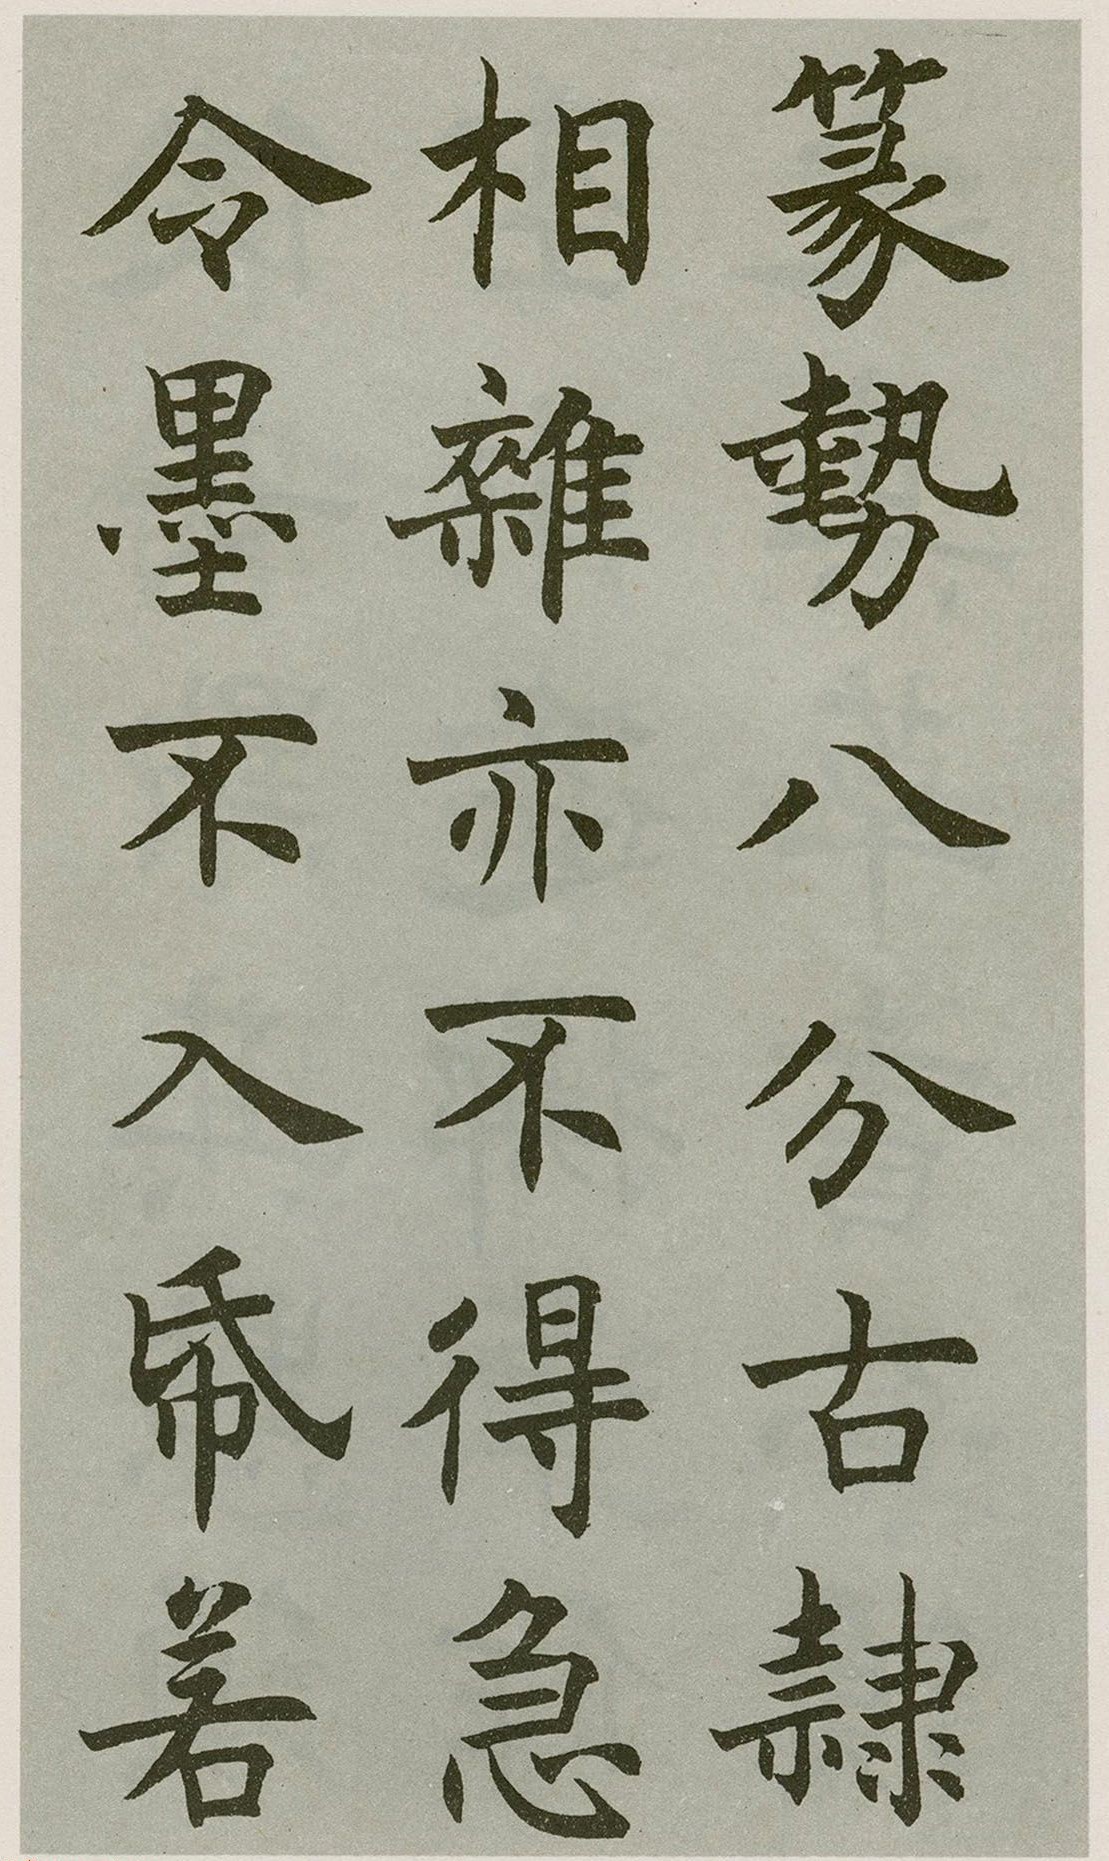 篆勢八分古隷
相雜亦不得急
令墨不入帋若